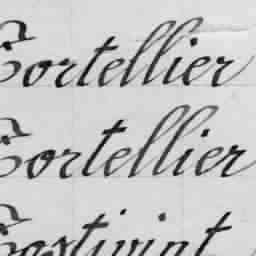 Cortellier
Cortellier
Costivint